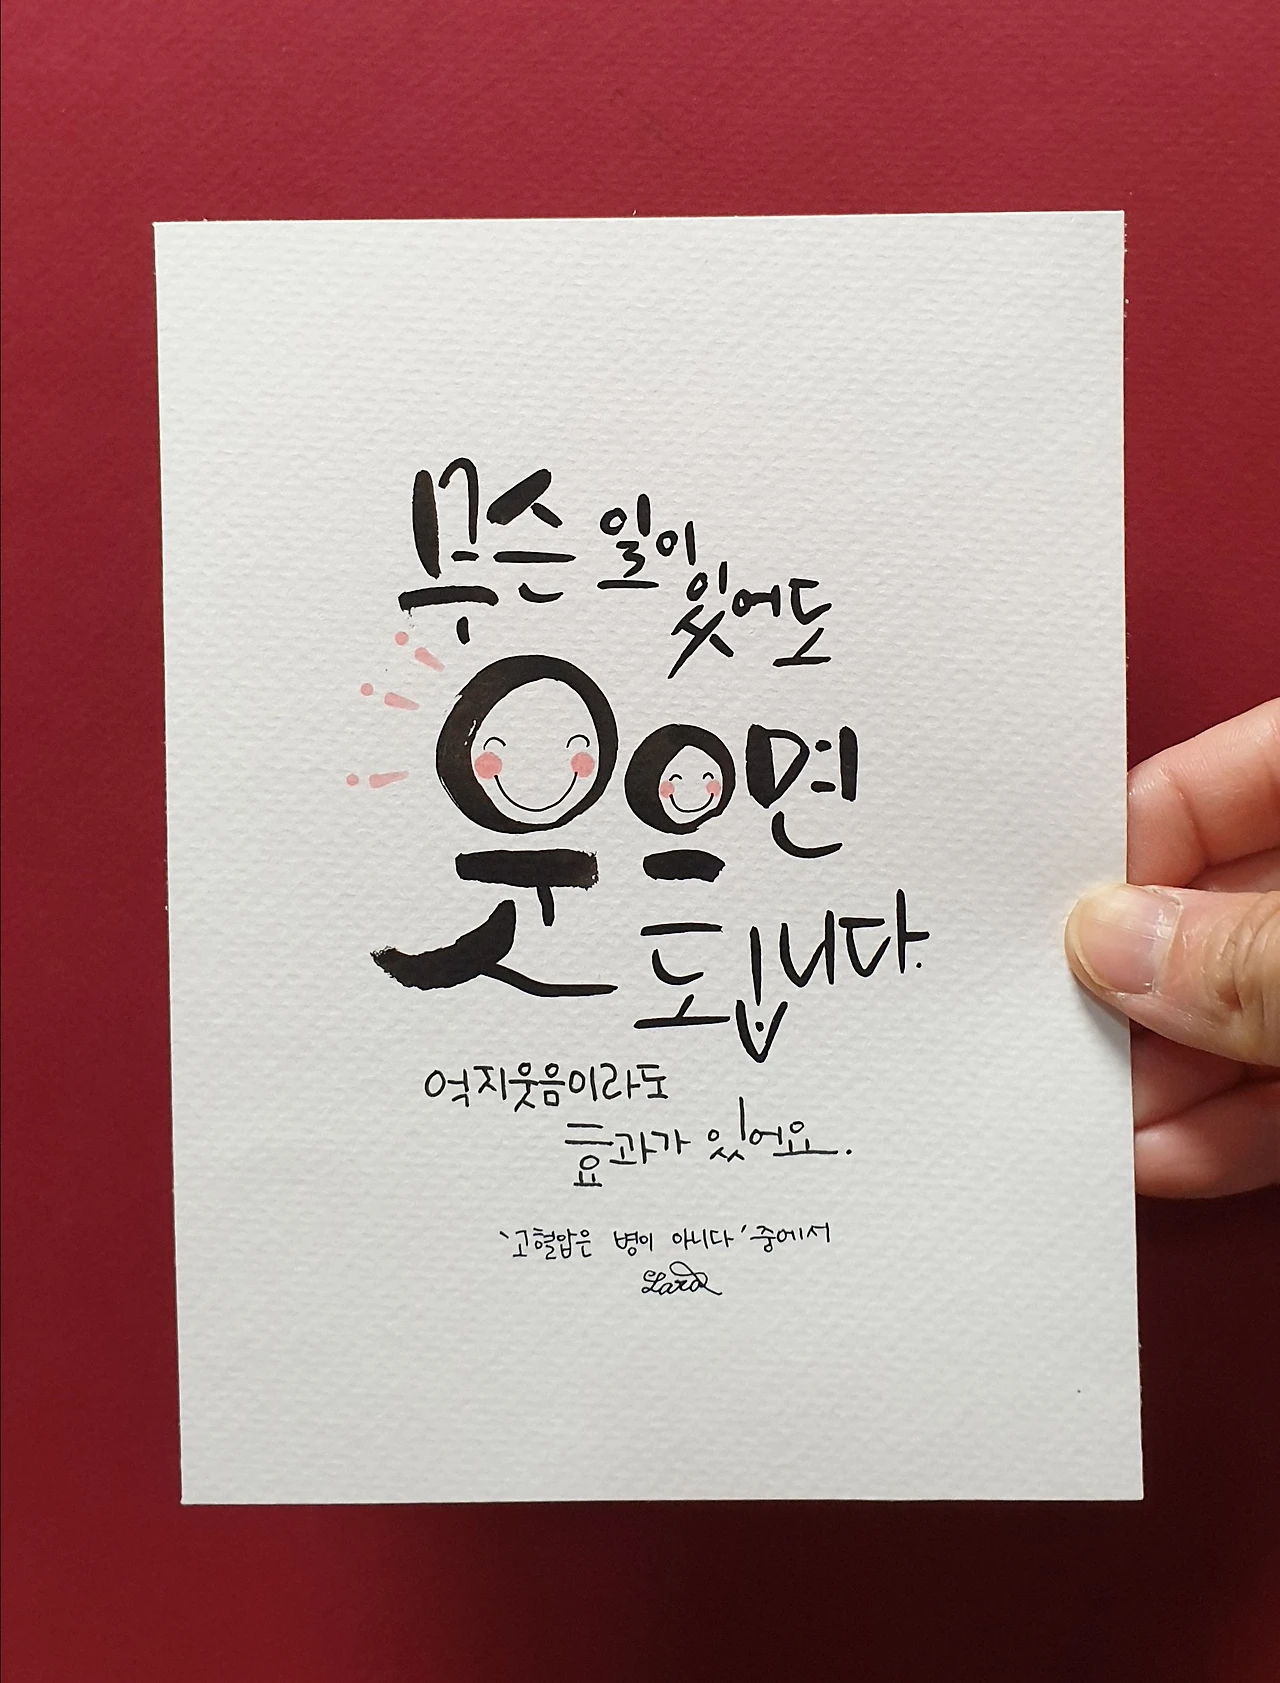 무슨 일이
있어도
웃으면
됩니다.
억지웃음이라도
효과가 있어요.
'고혈압은 병이 아니다' 중에서